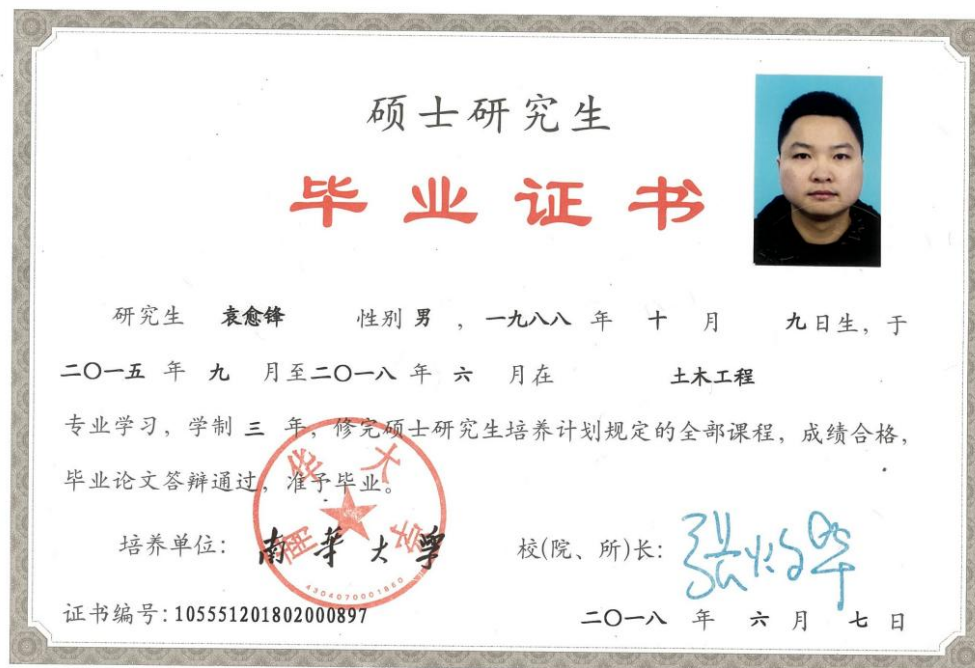 硕士研究生
毕业证书
研究生 袁愈锋 性别 男 ，一九八八 年 十 月 九日生，于
二〇一五 年 九 月至二〇一八 年 六 月在 土木工程
专业学习，学制 三 年，修完硕士研究生培养计划规定的全部课程，成绩合格，
毕业论文答辩通过，准予毕业。
南华大学
4304070001860
培养单位：南华大学 校(院、所)长：
证书编号：105551201802000897 二〇一八 年 六 月 七 日